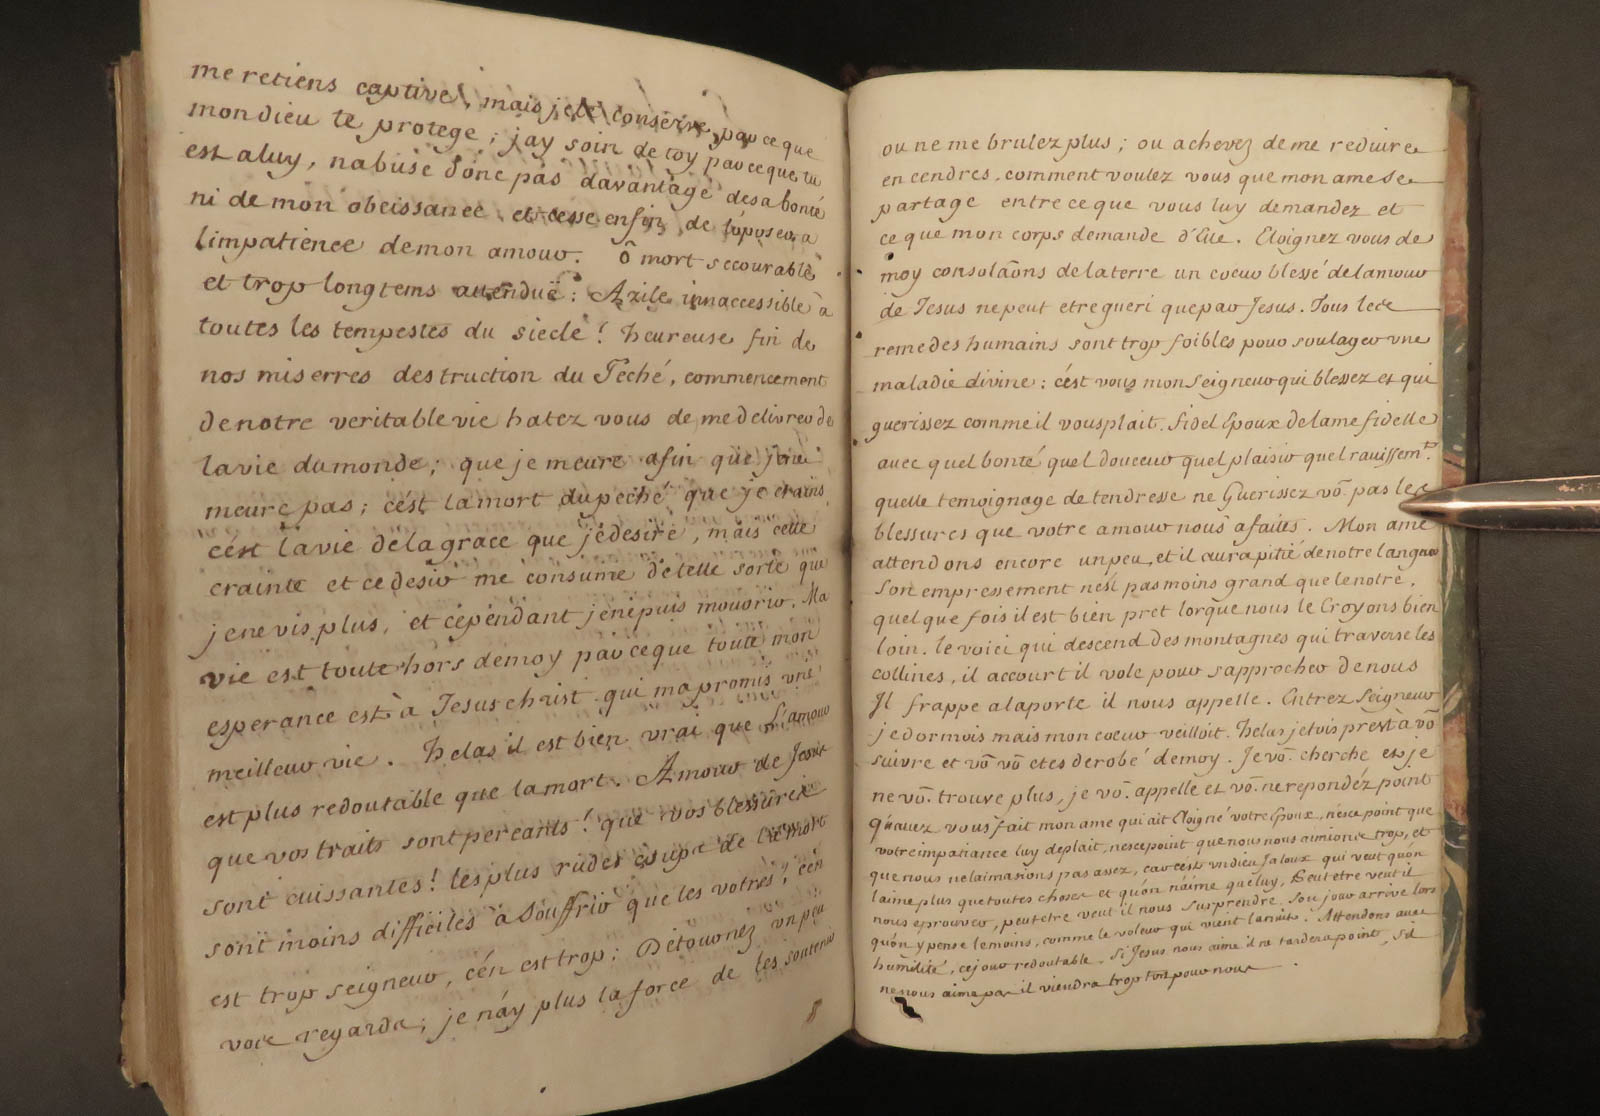 me retiens captive, mais je te conserve par ce que
mon dieu te protege ; jay soin de toy par ce que tu
est a luy, nabuse donc pas davantage de sa bonté
ni de mon obeissance et cesse enfin de t'oposer a
limpatience de mon amour. ô mort secourable
et trop longtems attenduë : Azile innaccessible à
toutes les tempestes du siecle ! heureuse fin de
nos miserres destruction du Péché, commencement
de notre veritable vie hatez vous de me delivrer de
la vie du monde ; que je meure afin que je ne
meure pas ; cést la mort du peché que je crains
cést la vie de la grace que je desire, mais cette
crainte et ce desir me consume de telle sorte que
je ne vis plus, et cépéndant je ne puis mourir. Ma
vie est toute hors de moy par ce que toute mon
esperance est à Jesus christ qui ma promis une
meilleur vie. helas il est bien vrai que l'amour
est plus redoutable que la mort. Amour de Jesus
que vos traits sont percants ! que vos blessures
sont cuissantes ! les plus rudes coups de la mort
sont moins difficiles à souffrir que les votres ; cén
est trop seigneur, cén est trop : Détournez un peu
vos regards ; je náy plus la force de les soutenir
ou ne me brulez plus ; ou achevez de me reduire
en cendres. comment voulez vous que mon ame se
partage entre ce que vous luy demandez et
ce que mon corps demande d'Elle. Eloignez vous de
moy consolaõns de la terre un coeur blessé de lamour
de Jesus ne peut etre gueri que par Jesus. Tous les
remedes humains sont trop foibles pour soulager une
maladie divine : cést vous mon seigneur qui blessez et qui
guerissez comme il vous plait. fidel Epoux de lame fidelle
avec quel bonté quel douceur quel plaisir quel ravissemt.
quelle temoignage de tendresse ne Guerissez võ pas les
blessures que votre amour nous a faites. Mon ame
attendons encore un peu, et il aura pitié de notre langueur
son empressement nést pas moins grand que le notre.
quel que fois il est bien pret lorque nous le Croyons bien
loin. le voici qui descend des montagnes qui traverse les
collines, il accourt il vole pour sapprocher de nous
Il frappe a la porte il nous appelle. Entrez seigneur
je dormois mais mon coeur veilloit. helas jetois prest à võ
suivre et võ võ etes derobé de moy. Je võ cherche et je
ne võ trouve plus, je võ appelle et võ ne repondéz point
Qu'avez vous fait mon ame qui ait Eloigné votre Epoux, nésce point que
votre impatiance luy deplait, nesce point que nous nous aimions trop, et
que nous ne laimasions pas assez, car cést un dieu Jaloux qui veut quón
laime plus que toutes choses et quón náime que luy, Peut etre veut il
nous eprouver, peut etre veut il nous surprendre son jour arrive lors
quón y pense le moins, comme le voleur qui vient la nuit. Attendons avec
humilité, ce jour redoutable. Si Jesus nous aime il ne tardera point, s'il
ne nous aime pas il viendra trop tost pour nous.